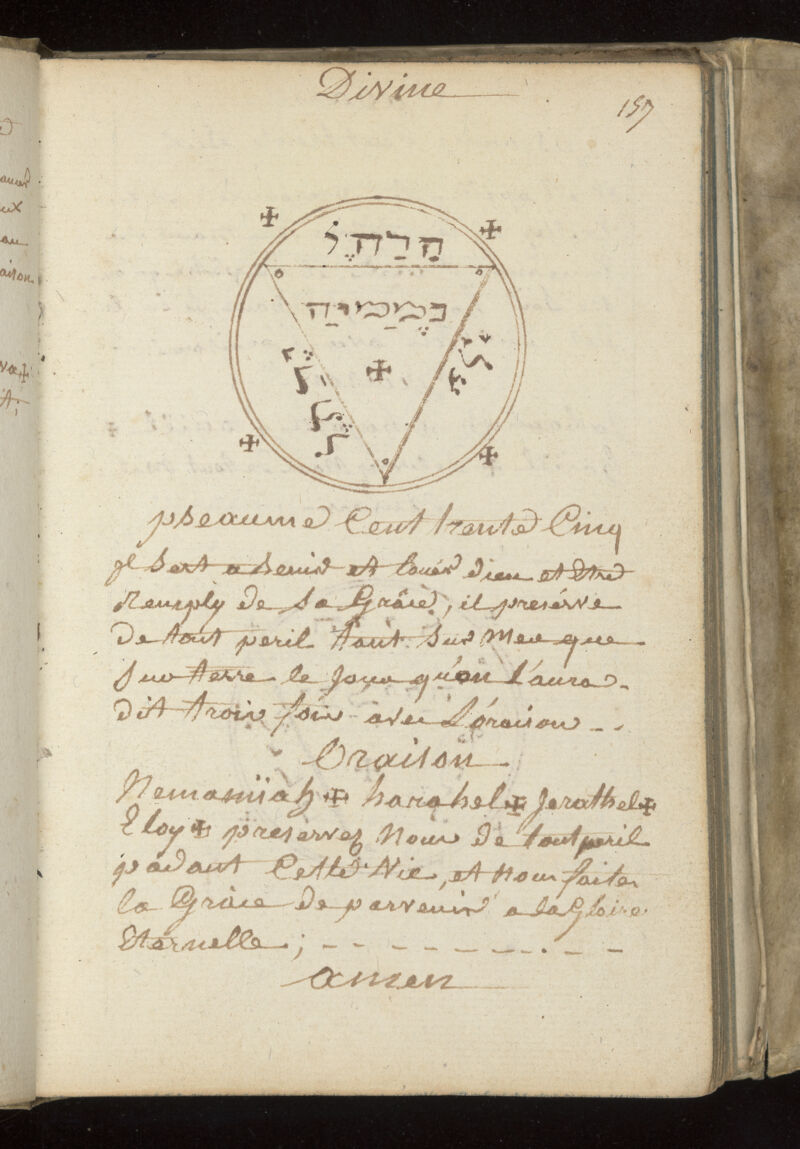 Divine
157
pseaume Cent trente Cinq
Jl Sert a benir et louer dieu et Etre
Remply de Sa Grâce, il presérve
de tout peril tant Sur Mer que
Sur terre le Jour qu'on L'aura
dit trois fois avec L'oraison
Oraison
Nemamiiah ✠ harahel ✠ Jerathel ✠
Eloy ✠ preservez Nous de tout peril
pãdant Cette Vie, et nous faite
la Grâce de parvenir a la Gloire
Eternelle;
amen